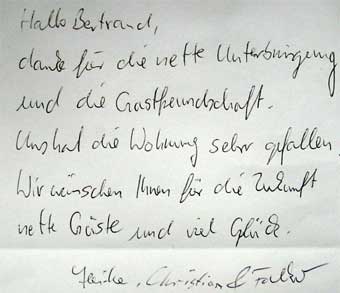 Hallo Bertrand,
danke für die nette Unterbringung
und die Gastfreundschaft.
Uns hat die Wohnung sehr gefallen.
Wir wünschen Ihnen für die Zukunft
nette Gäste und viel Glück.
Christian &